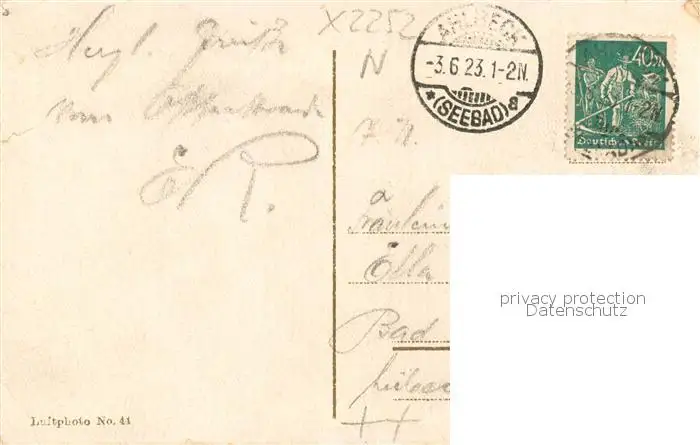 Herzl. Grüße
vom Ostseestrande
X2252
N
AHLBECK
-3.6.23.1-2N.
*(SEEBAD)a
40M
Deutsches Reich
Fräulein
Ella
Bad
privacy protection
Datenschutz
Luftphoto No. 41